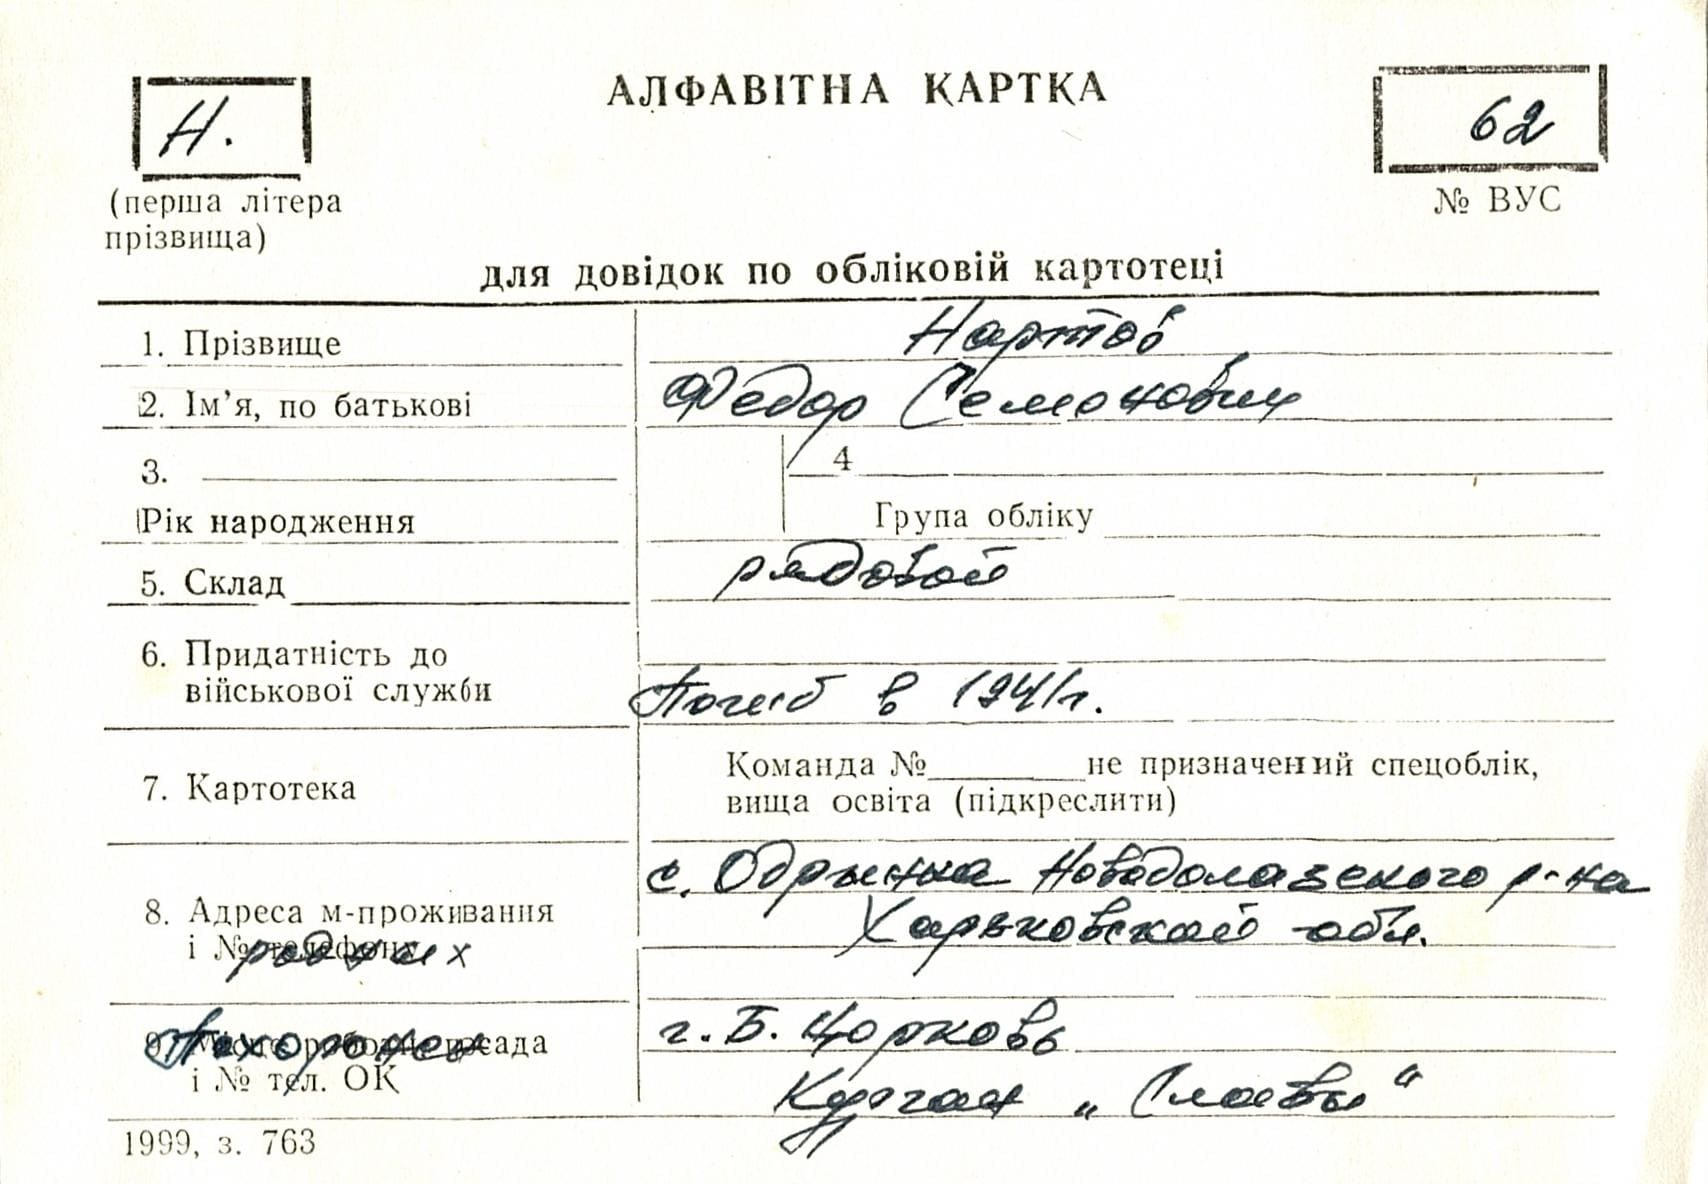 АЛФАВІТНА КАРТКА
Н.
62
(перша літера
прізвища)
№ ВУС
для довідок по обліковій картотеці
1. Прізвище Нартов
2. Ім’я, по батькові Федор Семенович
3. 4
Рік народження Група обліку
5. Склад рядовой
6. Придатність до
військової служби Погиб в 1941г.
7. Картотека Команда № не призначений спецоблік,
вища освіта (підкреслити)
с. Одрынка Новодолазского р-на
8. Адреса м-проживання Харьковской обл.
і № телефону родных
9. Місце роботи посада Похоронен г. Б. Церковь
і № тел. ОК Курган „Славы“
1999, з. 763